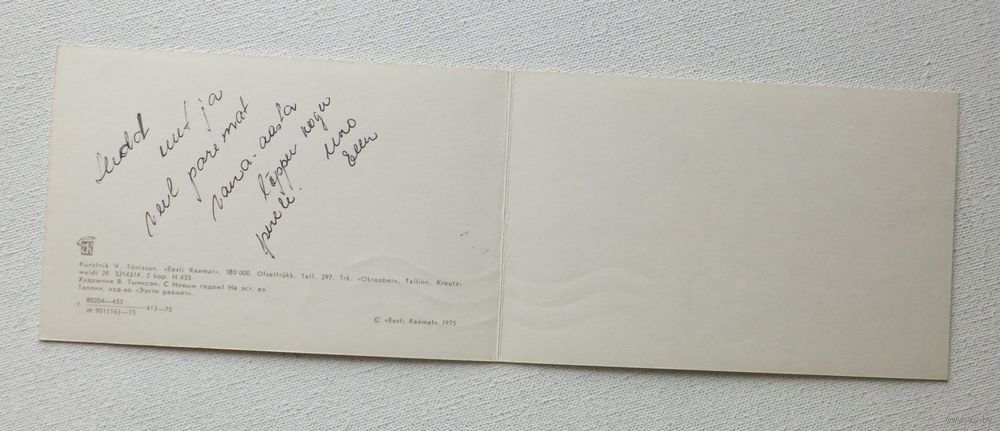 Head
uut ja
veel paremat
vana-aasta
lõppu kogu
perele!
Uno
Eevi
Kunstnik V. Tõnisson. «Eesti Raamat». 180 000. Ofsettrükk. Tell. 297. Trk. «Oktoober», Tallinn, Kreutz-
waldi 24. 3214314. 5 kop. H-433
Художник В. Тыниссон. С Новым годом! На эст. яз.
Таллин, изд-во «Ээсти раамат».
T 80204—455
M 901(16)—75 412—75
© «Eesti Raamat» 1975